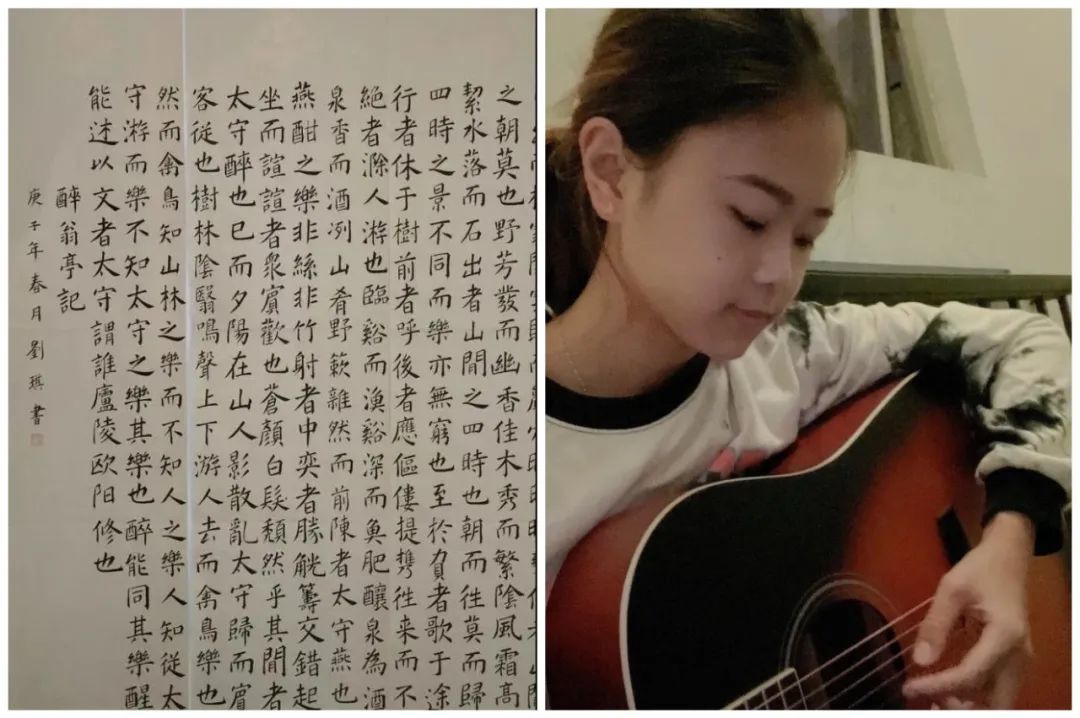 之朝莫也野芳發而幽香佳木秀而繁陰風霜高
絜水落而石出者山間之四時也朝而往莫而歸
四時之景不同而樂亦無窮也至於負者歌于途
行者休于樹前者呼後者應傴僂提攜往来而不
絶者滁人游也臨谿而漁谿深而魚肥釀泉為酒
泉香而酒洌山肴野蔌雜然而前陳者太守燕也
燕酣之樂非絲非竹射者中奕者勝觥籌交錯起
坐而諠諠者衆賓歡也蒼顏白髮頹然乎其閒者
太守醉也已而夕陽在山人影散亂太守歸而賓
客從也樹林陰翳鳴聲上下游人去而禽鳥樂也
然而禽鳥知山林之樂而不知人之樂人知從太
守游而樂不知太守之樂其樂也醉能同其樂醒
能述以文者太守謂誰廬陵欧阳修也
醉翁亭記
庚子年春月劉琪書